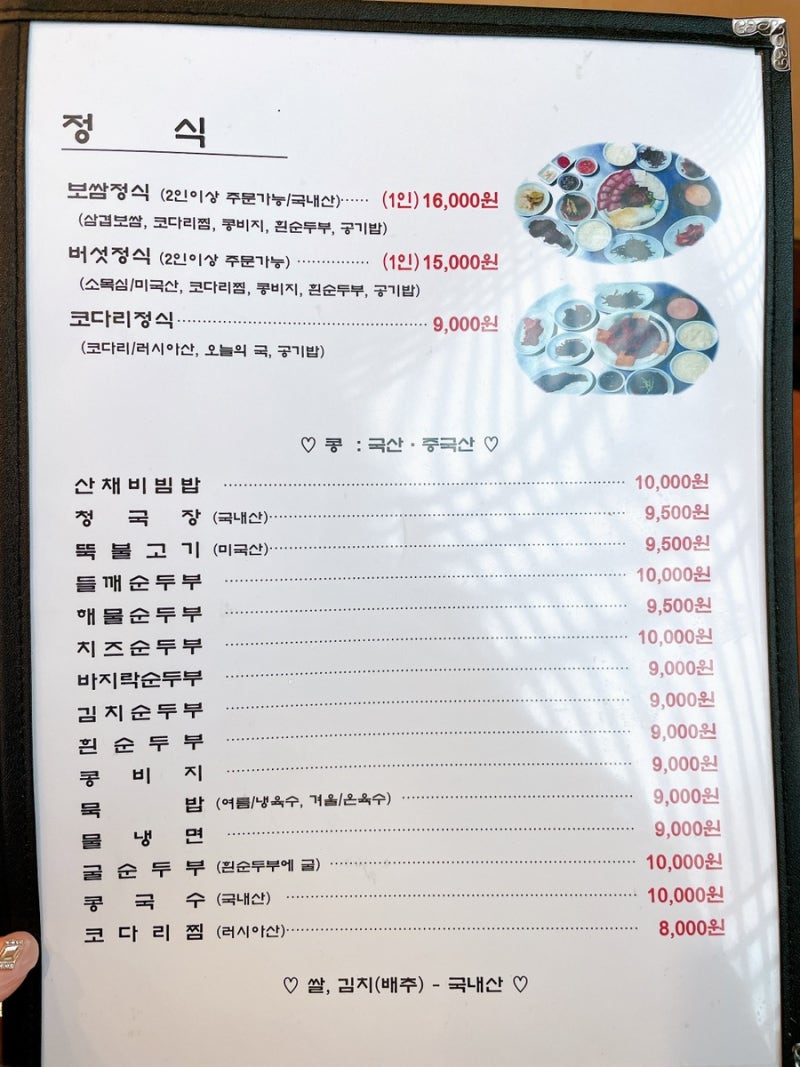 정 식
보쌈정식 (2인이상 주문가능/국내산)······ (1인)16,000원
(삼겹보쌈, 코다리찜, 콩비지, 흰순두부, 공기밥)
버섯정식 (2인이상 주문가능) ··············· (1인)15,000원
(소목심/미국산, 코다리찜, 콩비지, 흰순두부, 공기밥)
코다리정식······························ 9,000원
(코다리/러시아산, 오늘의 국, 공기밥)
♡ 콩 : 국산 · 중국산 ♡
산채비빔밥 ······························ 10,000원
청 국 장 (국내산)······························ 9,500원
뚝불고기 (미국산)······························ 9,500원
들깨순두부 ······························ 10,000원
해물순두부 ······························ 9,500원
치즈순두부 ······························ 10,000원
바지락순두부 ······························ 9,000원
김치순두부 ······························ 9,000원
흰순두부 ······························ 9,000원
콩 비 지 ······························ 9,000원
묵 밥 (여름/냉육수, 겨울/온육수) ······························ 9,000원
물 냉 면 ······························ 9,000원
굴순두부 (흰순두부에 굴) ······························ 10,000원
콩 국 수 (국내산) ······························ 10,000원
코다리찜 (러시아산)······························ 8,000원
♡ 쌀, 김치(배추) - 국내산 ♡